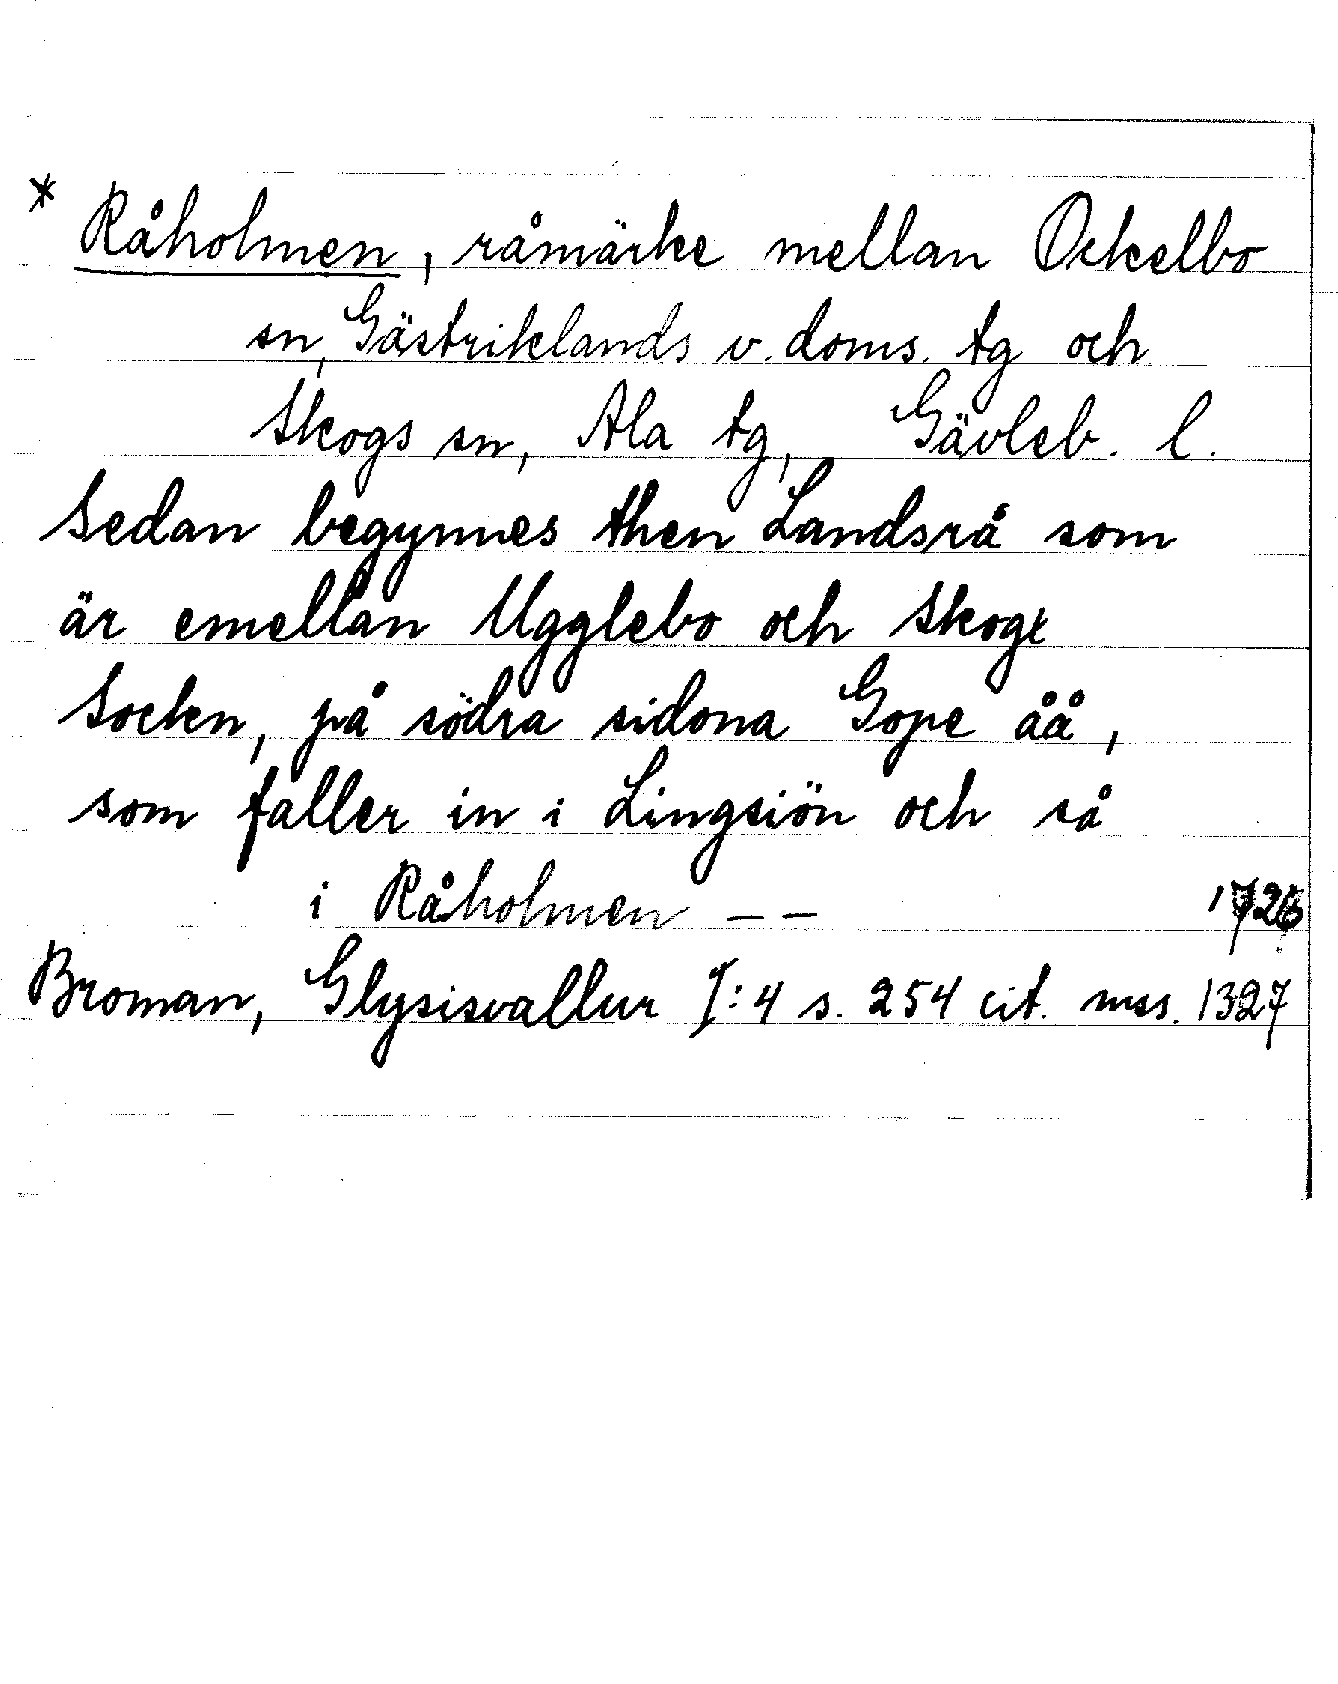 * Råholmen, råmärke mellan Ockelbo
sn, Gästriklands v. doms. tg och
Skogs sn, Ala tg, Gävleb. l.
Sedan begynnes then Landsrå som
är emellan Ugglebo och Skogs
Socken, på södra sidona Gope åå,
som faller in i Lingsiön och så
i Råholmen – – 1726
Broman, Glysisvallur I:4 s. 254 cit. mss. 1327